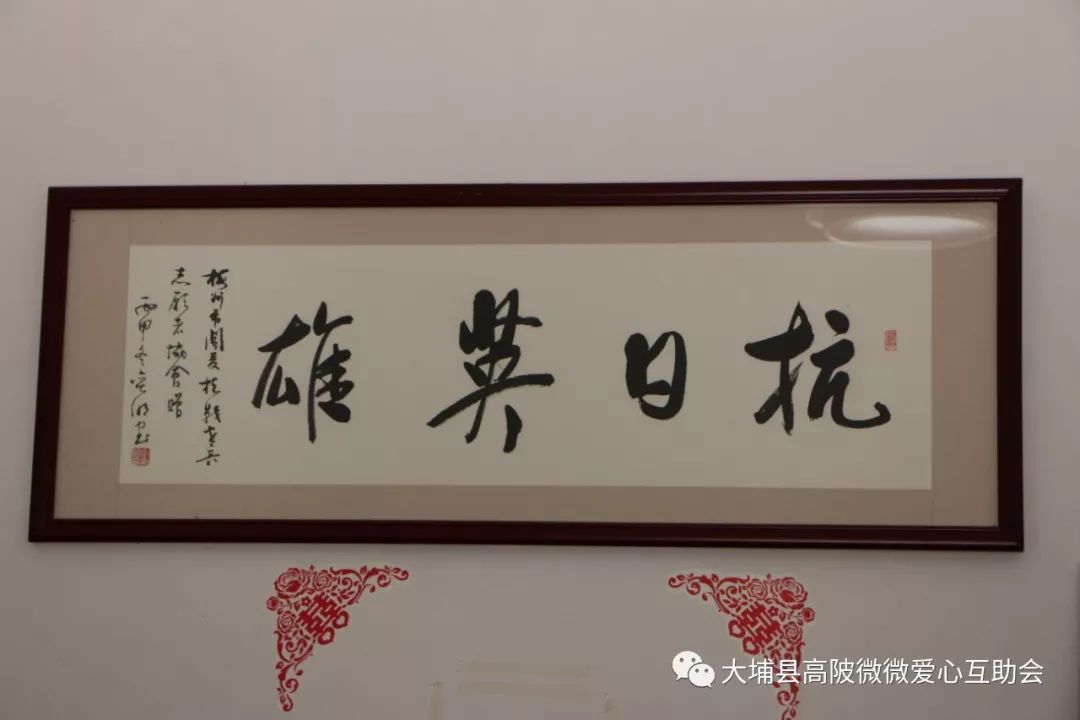 抗日英雄
梅州市關爱抗戰老兵
志愿者協會贈
丙申冬
大埔县高陂微微爱心互助会